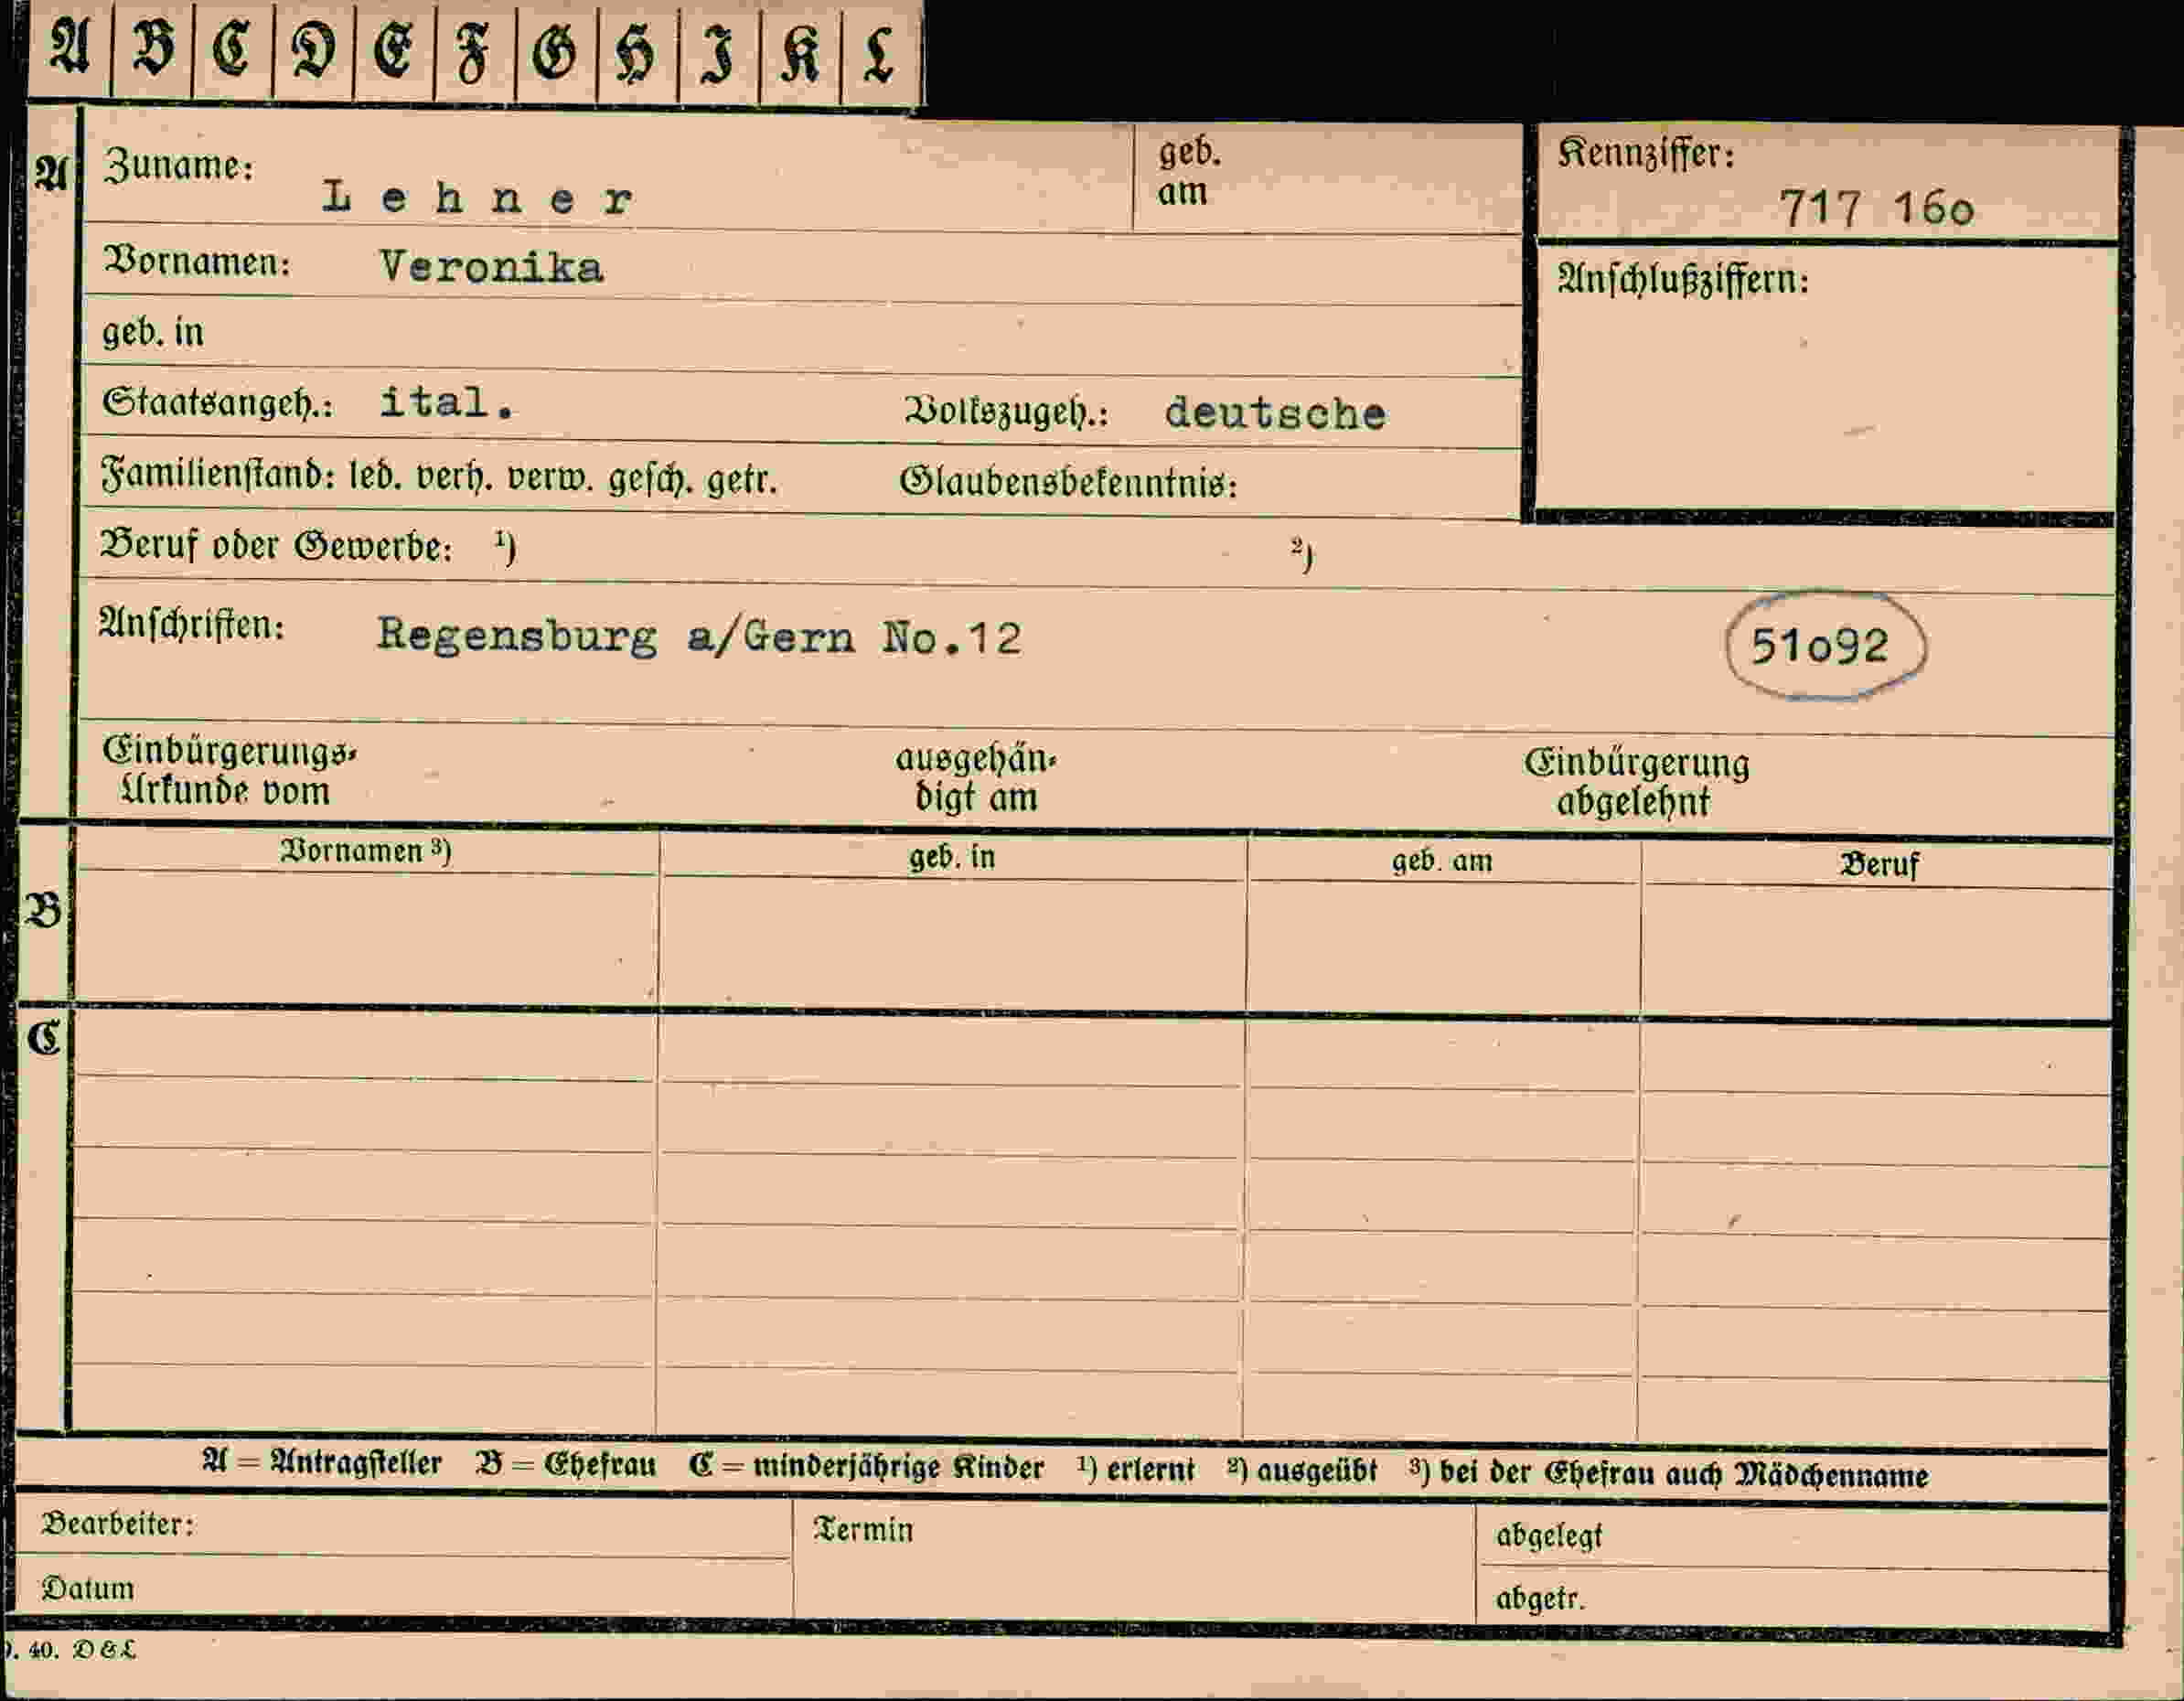 A B C D E F G H I K L
A Zuname: Lehner geb. am
Kennziffer: 717 16o
Vornamen: Veronika
Anschlußziffern:
geb. in
Staatsangeh.: ital. Volkszugeh.: deutsche
Familienstand: led. verh. verw. gesch. getr. Glaubensbekenntnis:
Beruf oder Gewerbe: ¹) ²)
Anschriften: Regensburg a/Gern No.12 51o92
Einbürgerungs- ausgehän- Einbürgerung
Urkunde vom digt am abgelehnt
Vornamen ³) geb. in geb. am Beruf
B
C
A = Antragsteller B = Ehefrau C = minderjährige Kinder ¹) erlernt ²) ausgeübt ³) bei der Ehefrau auch Mädchenname
Bearbeiter: Termin abgelegt
Datum abgetr.
. 40. D & L